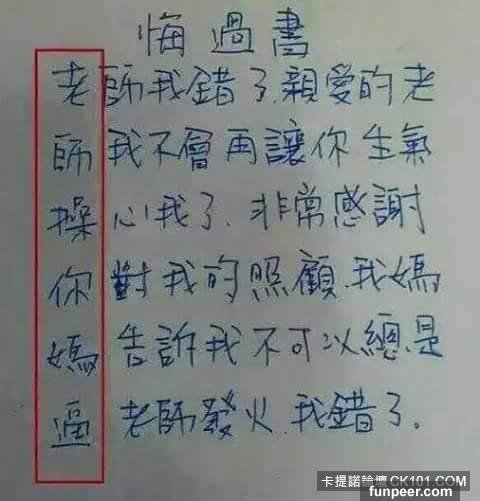 悔過書
老師我錯了.親愛的老
師我不會再讓你生氣
操心我了.非常感謝
你對我的照顧.我媽
媽告訴我不可以總是
逼老師發火.我錯了.
卡提諾論壇CK101.COM
funpeer.com